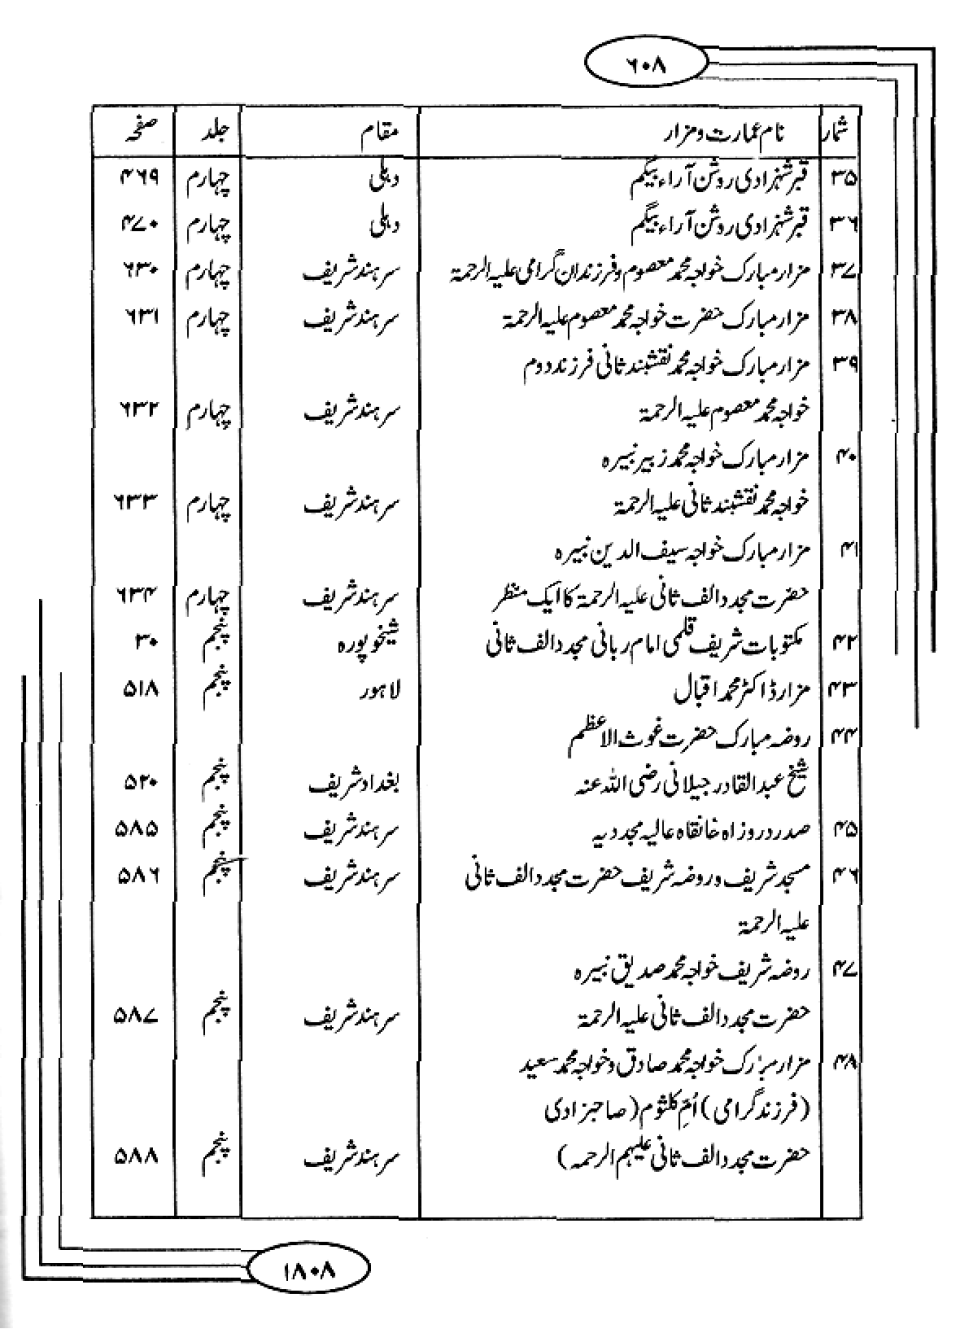 ۶۰۸
شمار نام عمارت و مزار مقام جلد صفحہ
۳۵ قبر شہزادی روشن آراء بیگم دہلی چہارم ۴۶۹
۳۶ قبر شہزادی روشن آراء بیگم دہلی چہارم ۴۷۰
۳۷ مزار مبارک خواجہ محمد معصوم و فرزندان گرامی علیہ الرحمۃ سرہند شریف چہارم ۶۳۰
۳۸ مزار مبارک حضرت خواجہ محمد معصوم علیہ الرحمۃ سرہند شریف چہارم ۶۳۱
۳۹ مزار مبارک خواجہ محمد نقشبند ثانی فرزند دوم
خواجہ محمد معصوم علیہ الرحمۃ سرہند شریف چہارم ۶۳۲
۴۰ مزار مبارک خواجہ محمد زبیر نبیرہ
خواجہ محمد نقشبند ثانی علیہ الرحمۃ سرہند شریف چہارم ۶۳۳
۴۱ مزار مبارک خواجہ سیف الدین نبیرہ
حضرت مجدد الف ثانی علیہ الرحمۃ کا ایک منظر سرہند شریف چہارم ۶۳۴
۴۲ مکتوبات شریف قلمی امام ربانی مجدد الف ثانی شیخوپورہ پنجم ۳۰
۴۳ مزار ڈاکٹر محمد اقبال لاہور پنجم ۵۱۸
۴۴ روضہ مبارک حضرت غوث الاعظم
شیخ عبدالقادر جیلانی رضی اللہ عنہ بغداد شریف پنجم ۵۲۰
۴۵ صدر دروزاہ خانقاہ عالیہ مجددیہ سرہند شریف پنجم ۵۸۵
۴۶ مسجد شریف و روضہ شریف حضرت مجدد الف ثانی سرہند شریف پنجم ۵۸۶
علیہ الرحمۃ
۴۷ روضہ شریف خواجہ محمد صدیق نبیرہ
حضرت مجدد الف ثانی علیہ الرحمۃ سرہند شریف پنجم ۵۸۷
۴۸ مزار مبارک خواجہ محمد صادق و خواجہ محمد سعید
(فرزند گرامی) اُمِّ کلثوم (صاحبزادی
حضرت مجدد الف ثانی علیہم الرحمہ) سرہند شریف پنجم ۵۸۸
۱۸۰۸